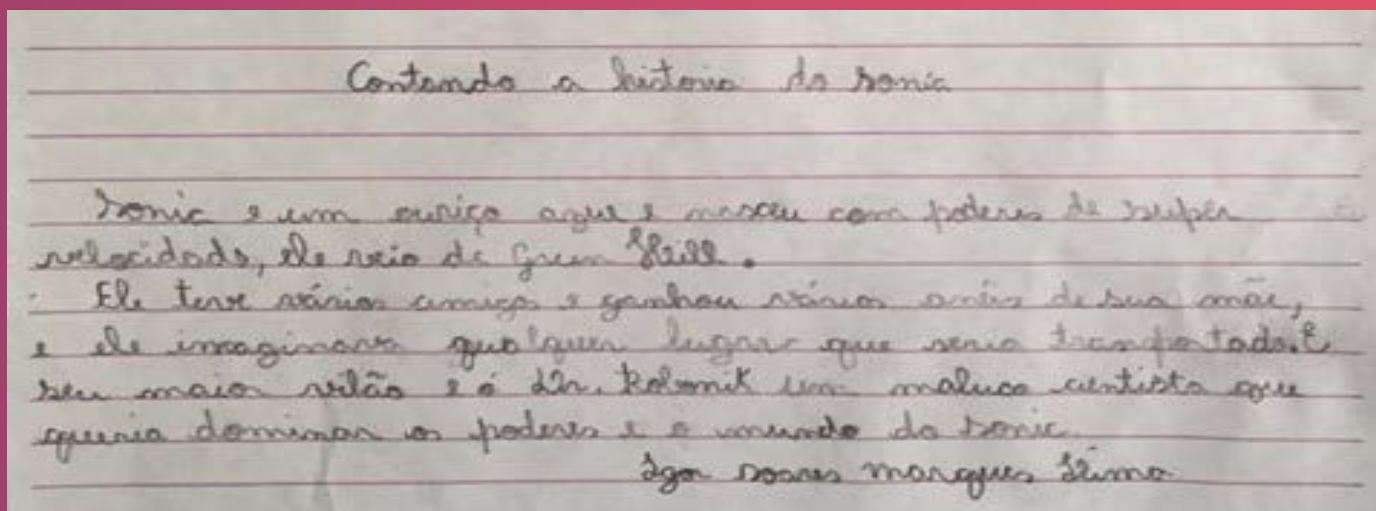 Contando a historia do sonic
Sonic e um ouriço azul e nasceu com poderes de super
velocidade, ele veio de Green Hill.
Ele teve vários amigos e ganhou vários anéis de sua mãe,
e ele imaginava qualquer lugar que seria transportado. E
seu maior vilão e o Dr. Robonik um maluco cientista que
queria dominar os poderes e o mundo do sonic
Igor soares marques